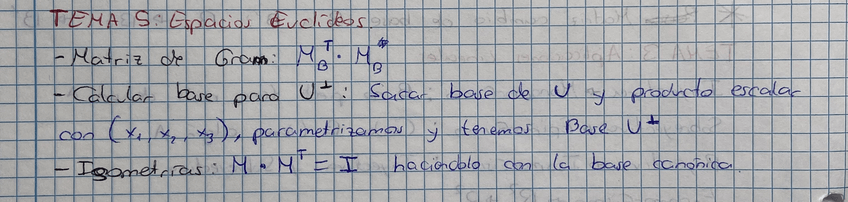 TEMA 5: Espacios Euclídeos.
- Matriz de Gram: M_B^T · M_B
- Calcular base para U^⊥: Sacar base de U y producto escalar
con (x₁, x₂, x₃), parametrizamos y tenemos Base U^⊥
- Isometrías: M · M^T = I haciéndolo con la base canónica.